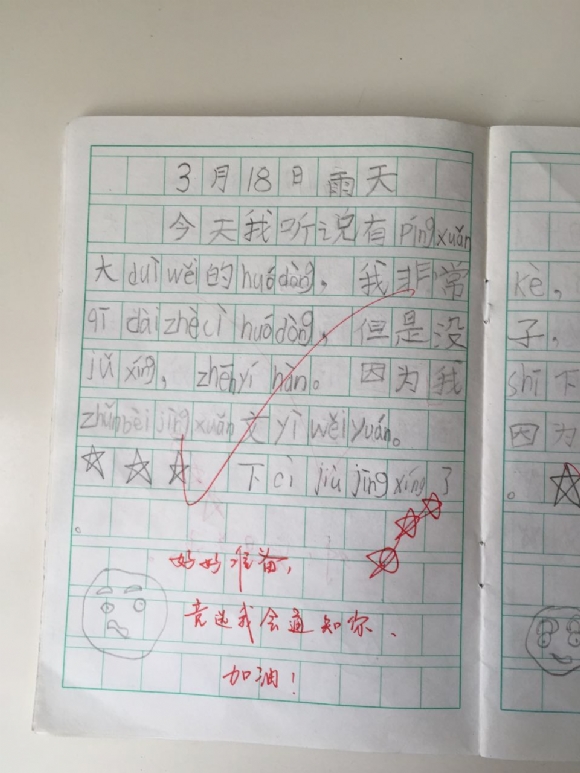 3月18日 雨天
今天我听说有píng xuǎn
大duì wěi的huó dòng，我非常
qī dài zhè cì huó dòng，但是没
jǔ xíng，zhēn yí hàn。因为我
zhǔn bèi jìng xuǎn文yì wěi yuán。
☆☆☆ 下cì jiù jǔ xíng了
。
好好准备，
竞选我会通知你、
加油！
kè，
子，
shī下
因为
。☆